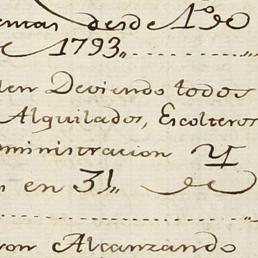 entas desde 1º de
e 1793,,
len Deviendo todos
Alquilados, Escolteros
ministracion y
en 31,, de
ron Alcanzando